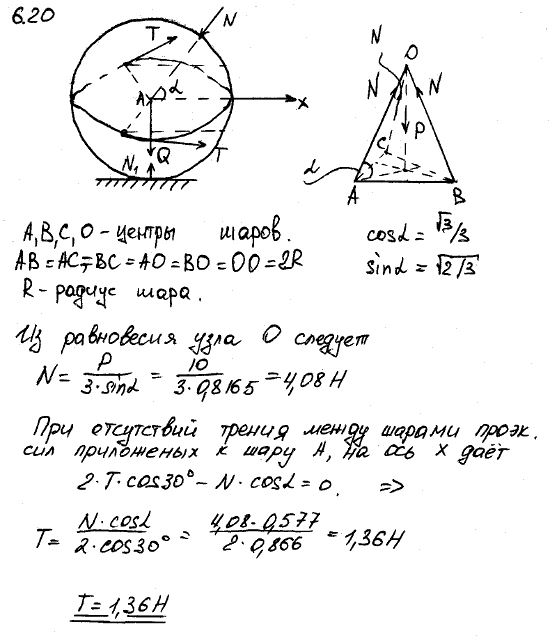 6.20
N
T
A
α
x
Q
N₁
T
N
O
N
N
P
C
α
A
B
A, B, C, O - центры шаров.
cosα = √3/3
AB = AC = BC = AO = BO = OO = 2R
sinα = √2/3
R - радиус шара.
Из равновесия узла O следует
N = P / 3·sinα = 10 / 3·0,8165 = 4,08 Н
При отсутствий трения между шарами проэк.
сил приложеных к шару A, на ось x даёт
2·T·cos30° - N·cosα = 0. =>
T = N·cosα / 2·cos30° = 4,08·0,577 / 2·0,866 = 1,36 Н
T = 1,36 Н